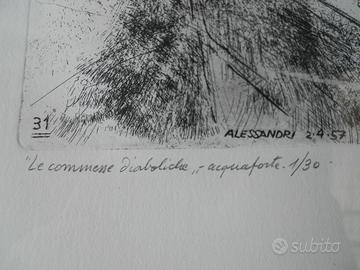 31
ALESSANDRI 2.4.57
"Le commesse diaboliche„ - acquaforte. 1/30.
subito